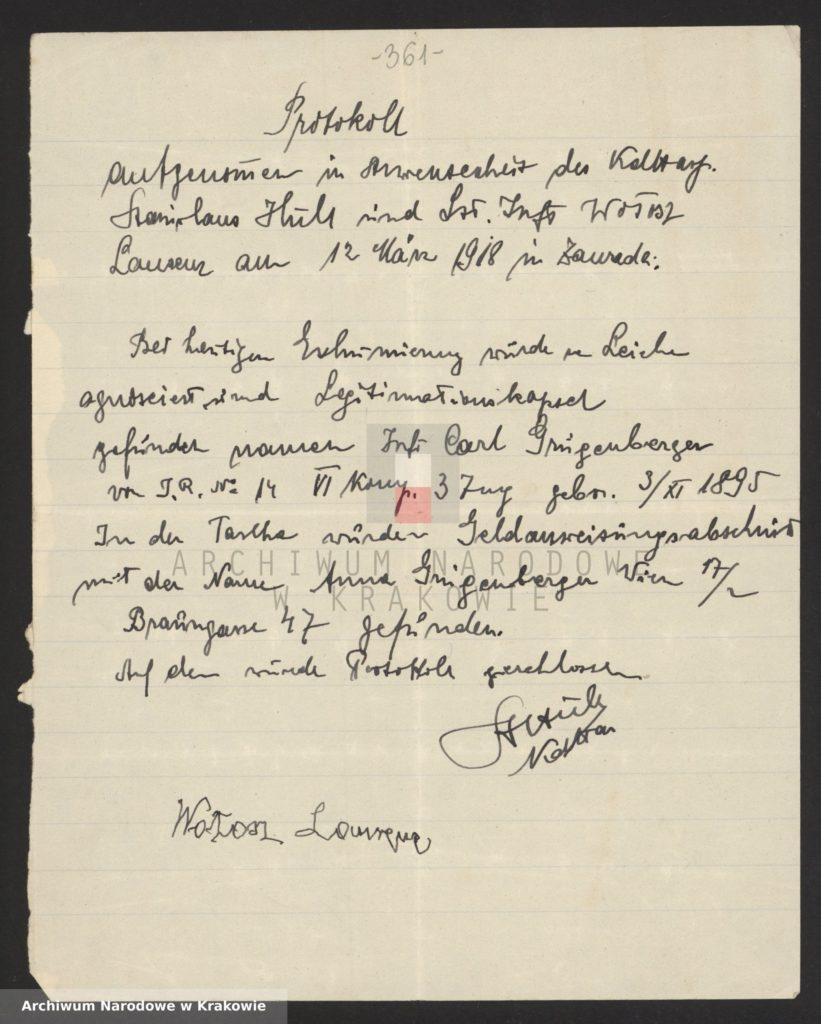 -361-
Protokoll
aufgenommen in Anwesenheit des Kdttasp.
Stanislaus Hull und Lst. Inft
am 12 März 1918 in Zawada.
Bei heutigen Exhumierung wurde Leiche
und Legitimationskapsel
gefunden namen Inft Carl Grugenberger
von I.R. No 14 VI Komp. 3 Zug gebor. 3/XI 1895
In der wurden Geldanweisungsabschnitt
mit der Name Anna Grugenberger Wien 17/2
Braungasse 47 gefunden.
Auf dem wurde Protokoll geschlossen
ARCHIWUM NARODOWE
W KRAKOWIE
Archiwum Narodowe w Krakowie